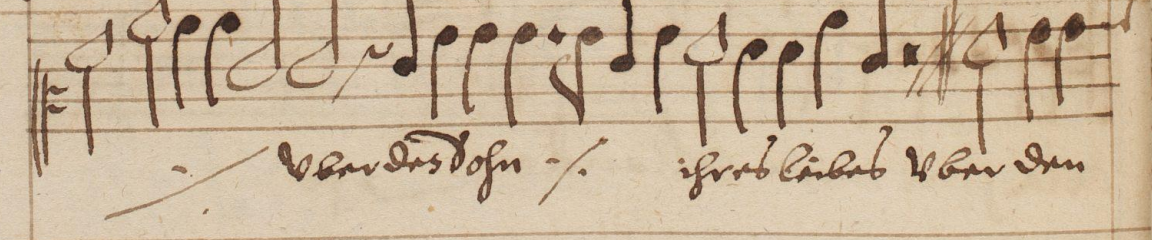 ./. vber den Sohn ./. ihres leibes vber den